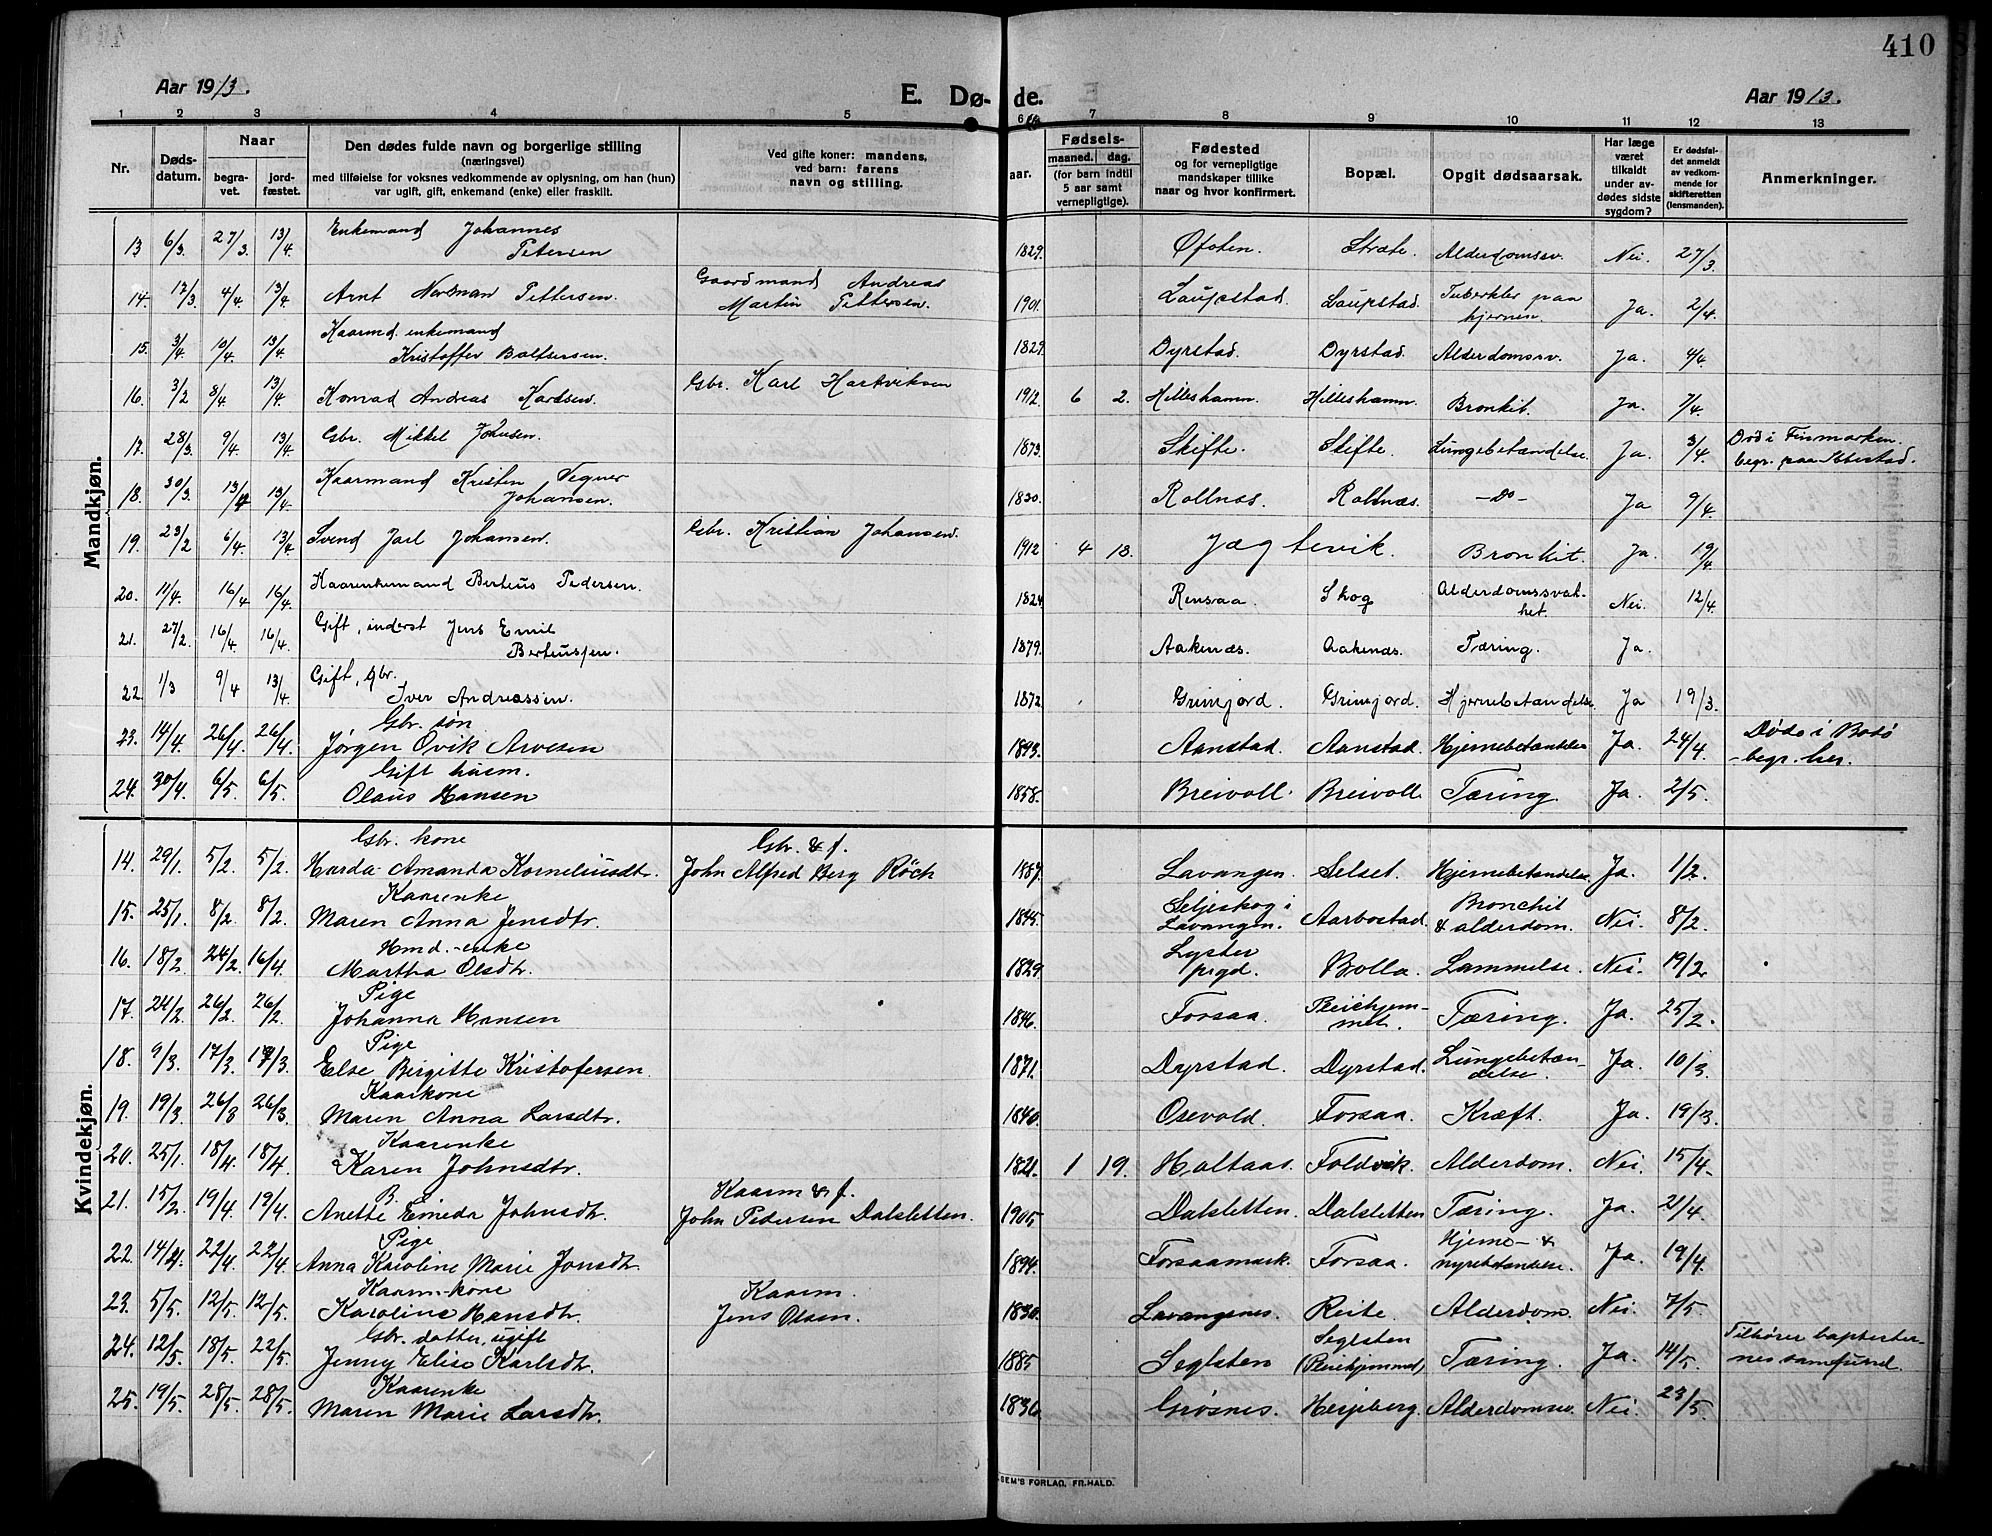 410
Aar 1913.
E. Døde.
Aar 1913.
1 2 3 4 5 6 7 8 9 10 11 12 13
Nr.
Døds-
datum.
Naar
begra-
vet.
jord-
fæstet.
Den dødes fulde navn og borgerlige stilling
(næringsvei)
med tilføielse for voksnes vedkommende av oplysning, om han (hun)
var ugift, gift, enkemand (enke) eller fraskilt.
Ved gifte koner: mandens,
ved barn: farens
navn og stilling.
aar.
Fødsels-
maaned. dag.
(for barn indtil
5 aar samt
vernepligtige).
Fødested
og for vernepligtige
mandskaper tillike
naar og hvor konfirmert.
Bopæl.
Opgit dødsaarsak.
Har læge
været
tilkaldt
under av-
dødes sidste
sygdom?
Er dødsfal-
det anmeldt
av vedkom-
mende for
skifteretten
(lensmanden).
Anmerkninger.
Mandkjøn.
13 6/3 27/3 13/4 Enkemand Johannes
Petersen 1829. Ofoten. Stråte. Alderdomssv. Nei. 27/3.
14. 17/3 4/4 13/4 Arnt Norman Pettersen. Gaardmand Andreas
Martin Pettersen. 1901. Laupstad. Laupstad. Tuberkler paa
hjernen. Ja. 2/4.
15. 3/4 10/4 13/4 Kaarmd. enkemand
Kristoffer Baltsersen. 1829. Dyrstad. Dyrstad. Alderdomssv. Ja. 4/4
16. 3/2 8/4 13/4 Konrad Andreas Karlsen. Gbr. Karl Hartviksen 1912. 6 2. Hilleshamn. Hilleshamn. Bronkit. Ja. 7/4.
17. 28/3 9/4 13/4 Gbr. Mikkel Johnsen. 1873. Skifte. Skifte. Lungebetændelse. Ja. 3/4. Død i Finmarken.
begr. paa Ibbestad.
18. 30/3 13/4 13/4 Kaarmand Kristen Vegner
Johansen. 1830. Rollnæs. Rollnæs. -Do- Ja 9/4.
19. 23/2 6/4 13/4 Svend Jarl Johansen. Gbr. Kristian Johansen. 1912 4 13. Jægtevik. Bronkit. Ja. 19/4
20. 11/4. 16/4 16/4 Kaarenkemand Berteus Pedersen. 1824. Rensaa. Skog Alderdomssvak-
het. Nei. 12/4.
21. 27/2. 16/4 16/4. Gift, inderst Jens Emil
Berteussen. 1879. Aakenæs. Aakenæs. Tæring. Ja.
22. 1/3 9/4 13/4 Gift, gbr.
Iver Andreassen. 1872 Grinjord. Grinjord. Hjernebetændelse. Ja 19/3.
23. 14/4. 26/4. 26/4. Gbr. søn
Jørgen Ovik Arvesen 1893. Aanstad. Aanstad. Hjernebetændelse Ja. 24/4. Døde i Bodø
- begr. her.
24. 30/4. 6/5. 6/5. Gift husm.
Olaus Hansen 1858. Breivoll. Breivoll. Tæring. Ja. 2/5.
Kvindekjøn.
14. 29/1. 5/2. 5/2. Gbr. kone
Harda Amanda Korneliusdtr. Gbr. & f.
John Alfred Berg Röck 1887. Lavangen. Selset. Hjernebetændelse Ja. 1/2.
15. 25/1. 8/2. 8/2. Kaarenke
Maren Anna Jensdtr. 1845. Seljeskog i
Lavangen. Aarbostad. Bronchit
& alderdom. Nei. 8/2.
16. 18/2. 24/2. 16/4. Hmd.-enke
Martha Olsdtr. 1829. Lyster
prgd. Bolla. Lammelse. Nei. 19/2.
17. 24/2. 26/2. 26/2. Pige
Johanna Hansen 1846. Forsaa. Pleiehjem-
met. Tæring. Ja. 25/2.
18. 9/3. 17/3. 17/3. Pige
Else Birgitte Kristofersen. 1871. Dyrstad. Dyrstad. Lungebetæn-
delse. Ja. 10/3
19. 19/3 26/3 26/3. Kaarkone
Maren Anna Larsdtr. 1840. Osevold. Forsaa. Kræft. Ja. 19/3.
20. 25/1. 18/4. 18/4 Kaarenke
Karen Johnsdtr. 1821. 1 19. Haltaas. Foldvik. Alderdom. Nei. 15/4.
21. 15/2. 19/4. 19/4. B.
Anette Emeda Johnsdtr. Kaarm & f.
John Pedersen Dalsletten. 1905. Dalsletten. Dalsletten Tæring. Ja. 2/4.
22. 14/4. 22/4. 22/4. Pige
Anna Karoline Marie Jonsdtr. 1894. Forsaamark. Forsaa. Hjerne- &
nyrebetændelse. Ja. 19/4.
23. 5/5. 12/5. 12/5. Kaarm-kone
Karoline Hansdtr. Kaarm.
Jens Olsen. 1830. Lavangsnes. Reite Alderdom. Nei. 7/5.
24. 12/5 18/5. 22/5. Gbr. datter, ugift
Jenny Elise Karlsdtr. 1885 Seglsten Seglsten
(Pleiehjemmet) Tæring. Ja. 14/5. Tilhører baptister-
nes samfund.
25. 19/5. 28/5. 28/5. Kaarenke
Maren Marie Larsdtr. 1836. Grøsnes. Hesjeberg. Alderdomssv. Nei. 23/5.
SEM'S FORLAG, FR.HALD.